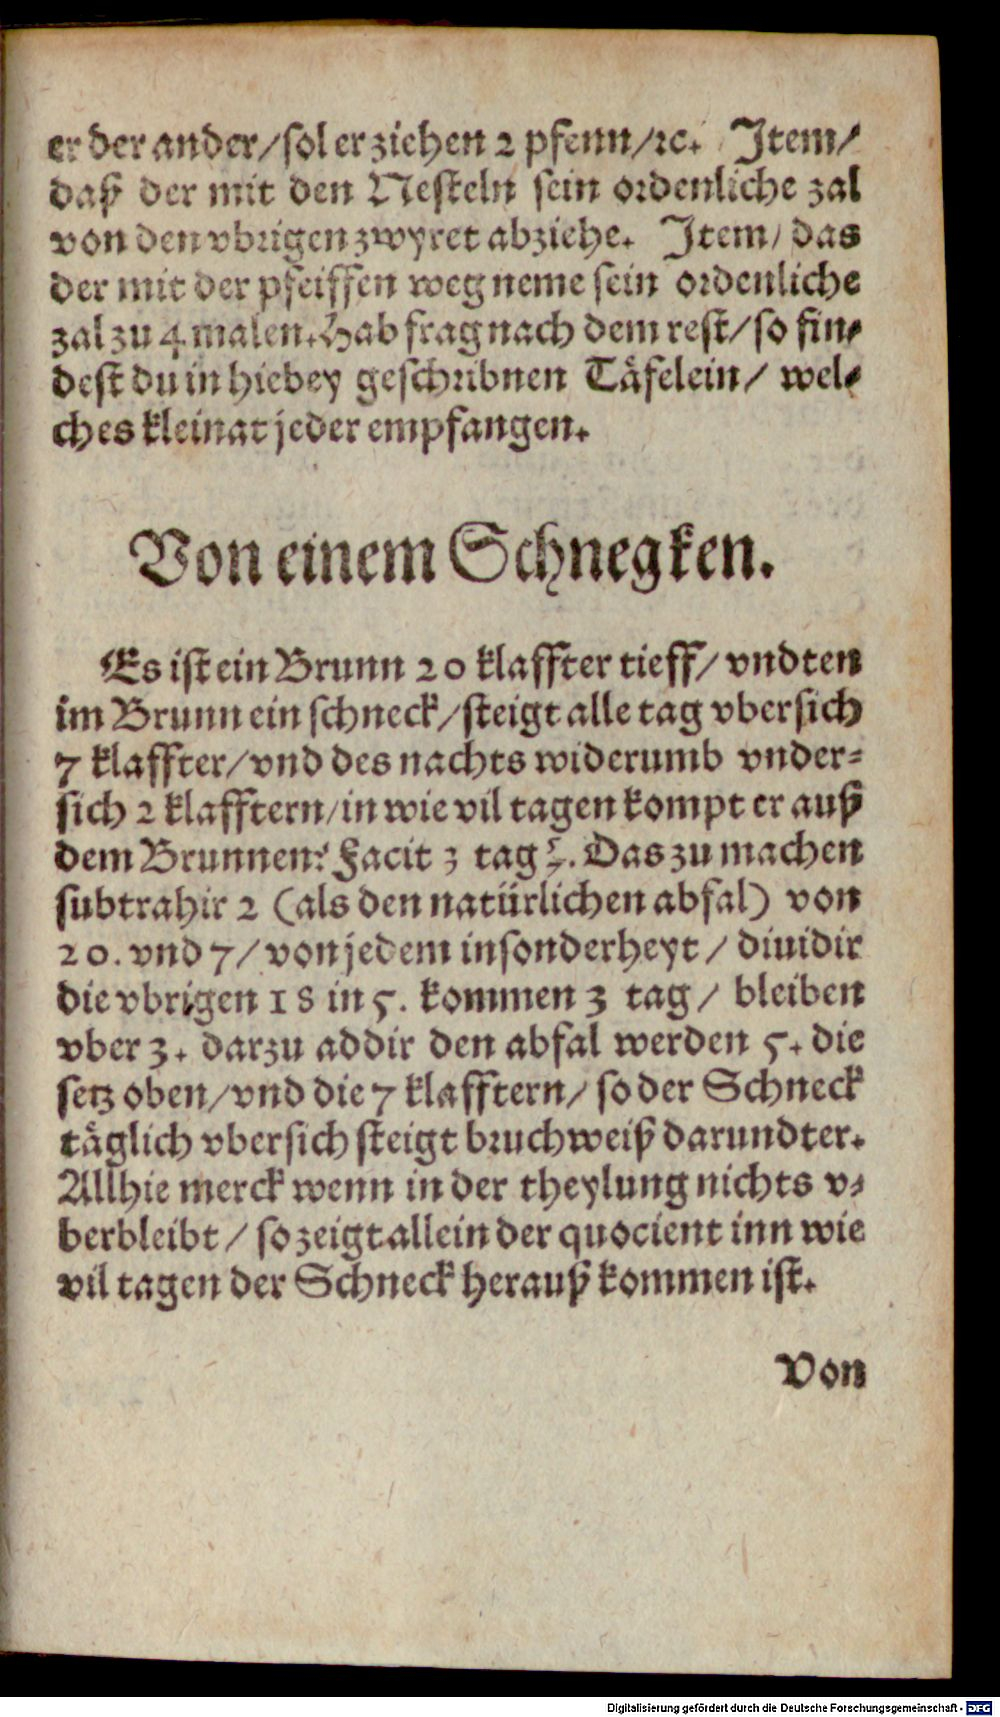 er der ander/sol er ziehen 2 pfenn/ꝛc. Item/
daß der mit den Nesteln sein ordenliche zal
von den vbrigen zwyret abziehe. Item/ das
der mit der pfeiffen weg neme sein ordenliche
zal zu 4 malen. Hab frag nach dem rest/ so fin⸗
dest du in hiebey geschribnen Täfelein/ wel⸗
ches kleinat jeder empfangen.
Von einem Schnegken.
Es ist ein Brunn 20 klaffter tieff/ vndten
im Brunn ein schneck/steigt alle tag vbersich
7 klaffter/vnd des nachts widerumb vnder⸗
sich 2 klafftern/in wie vil tagen kompt er auß
dem Brunnen? Facit 3 tag 5/7. Das zu machen
subtrahir 2 (als den natürlichen abfal) von
20. vnd 7/ von jedem insonderheyt / diuidir
die vbrigen 18 in 5. kommen 3 tag/ bleiben
vber 3. darzu addir den abfal werden 5. die
setz oben/vnd die 7 klafftern/ so der Schneck
täglich vbersich steigt bruchweiß darundter.
Allhie merck wenn in der theylung nichts v⸗
berbleibt / so zeigt allein der quocient inn wie
vil tagen der Schneck herauß kommen ist.
Von
Digitalisierung gefördert durch die Deutsche Forschungsgemeinschaft - DFG